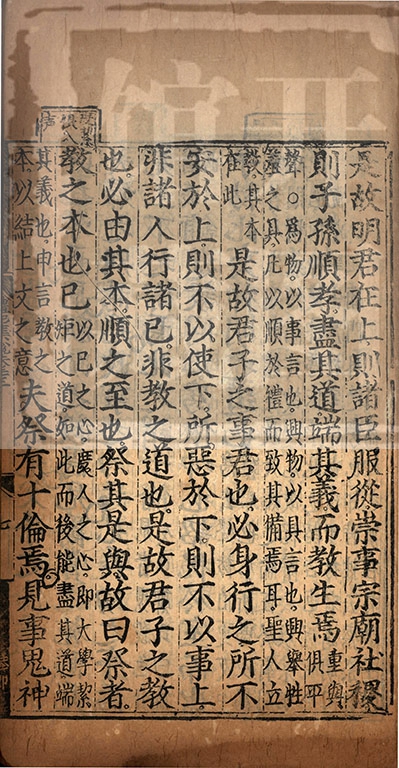 是故明君在上則諸臣服從崇事宗廟社稷
則子孫順孝盡其道端其義而教生焉重與
俱平
聲○為物以事言也興物以具言也興舉牲
之具凡以順於禮而致其備焉耳聖人立
教其本
在此是故君子之事君也必身行之所不
安於上則不以使下所惡於下則不以事上
非諸人行諸已非教之道也是故君子之教
也必由其本順之至也祭其是與故曰祭者
教之本也已以已之心度人之心即大學絜
矩之道如此而後能盡其道端
其義也申言教之
本以結上文之意夫祭有十倫焉見事鬼神